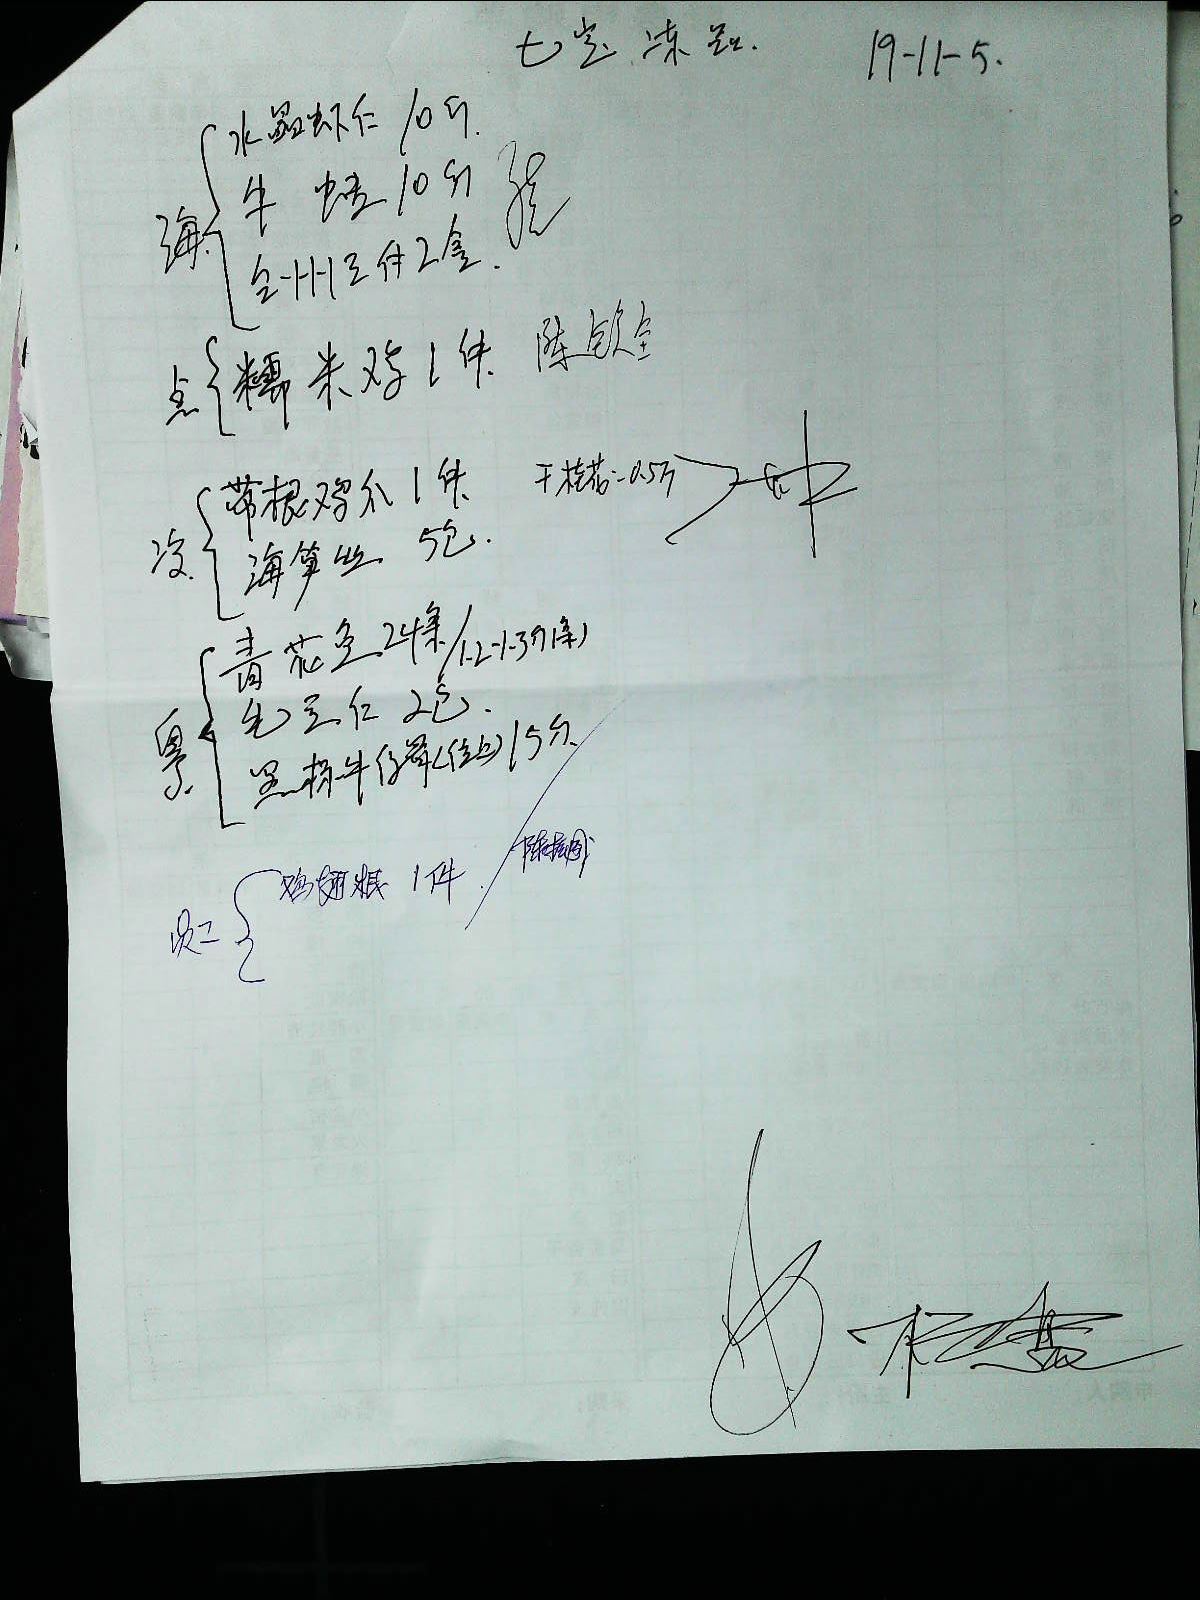 七宝 冻品. 19-11-5.
海 水晶虾仁 10斤.
牛蛙 10斤
2盒.
点 糯米鸡 1件 陈钦全
带根鸡爪 1件 干桂花-0.5斤
海笋丝 5包.
粤 青花鱼 24条/1.2-1.3斤(条)
毛豆仁 2包.
黑椒牛仔骨(位上) 15斤.
员工 鸡翅根 1件.